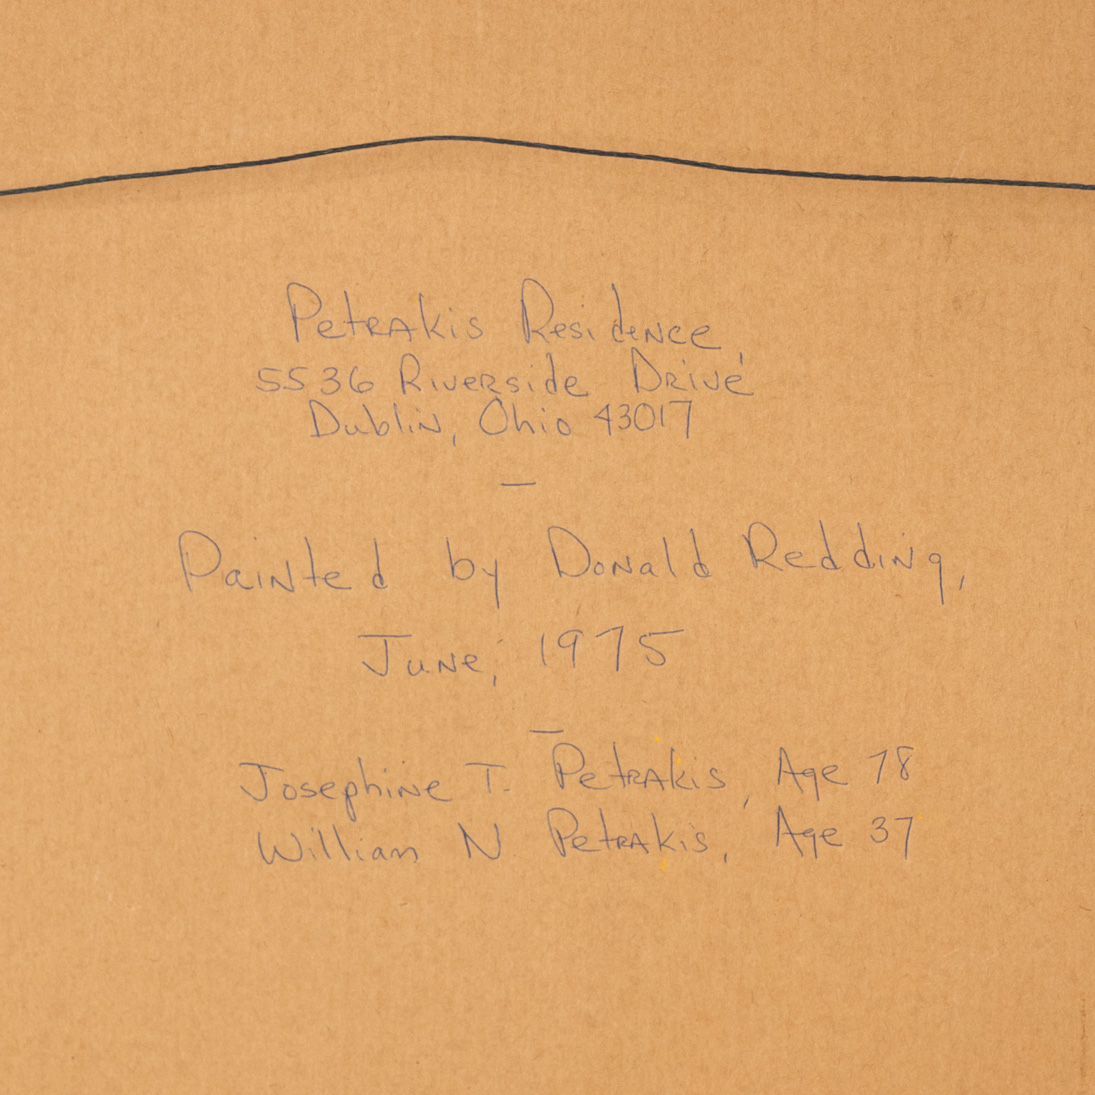 Petrakis Residence,
5536 Riverside Drive
Dublin, Ohio 43017
—
Painted by Donald Redding,
June, 1975
—
Josephine T. Petrakis, Age 78
William N Petrakis, Age 37